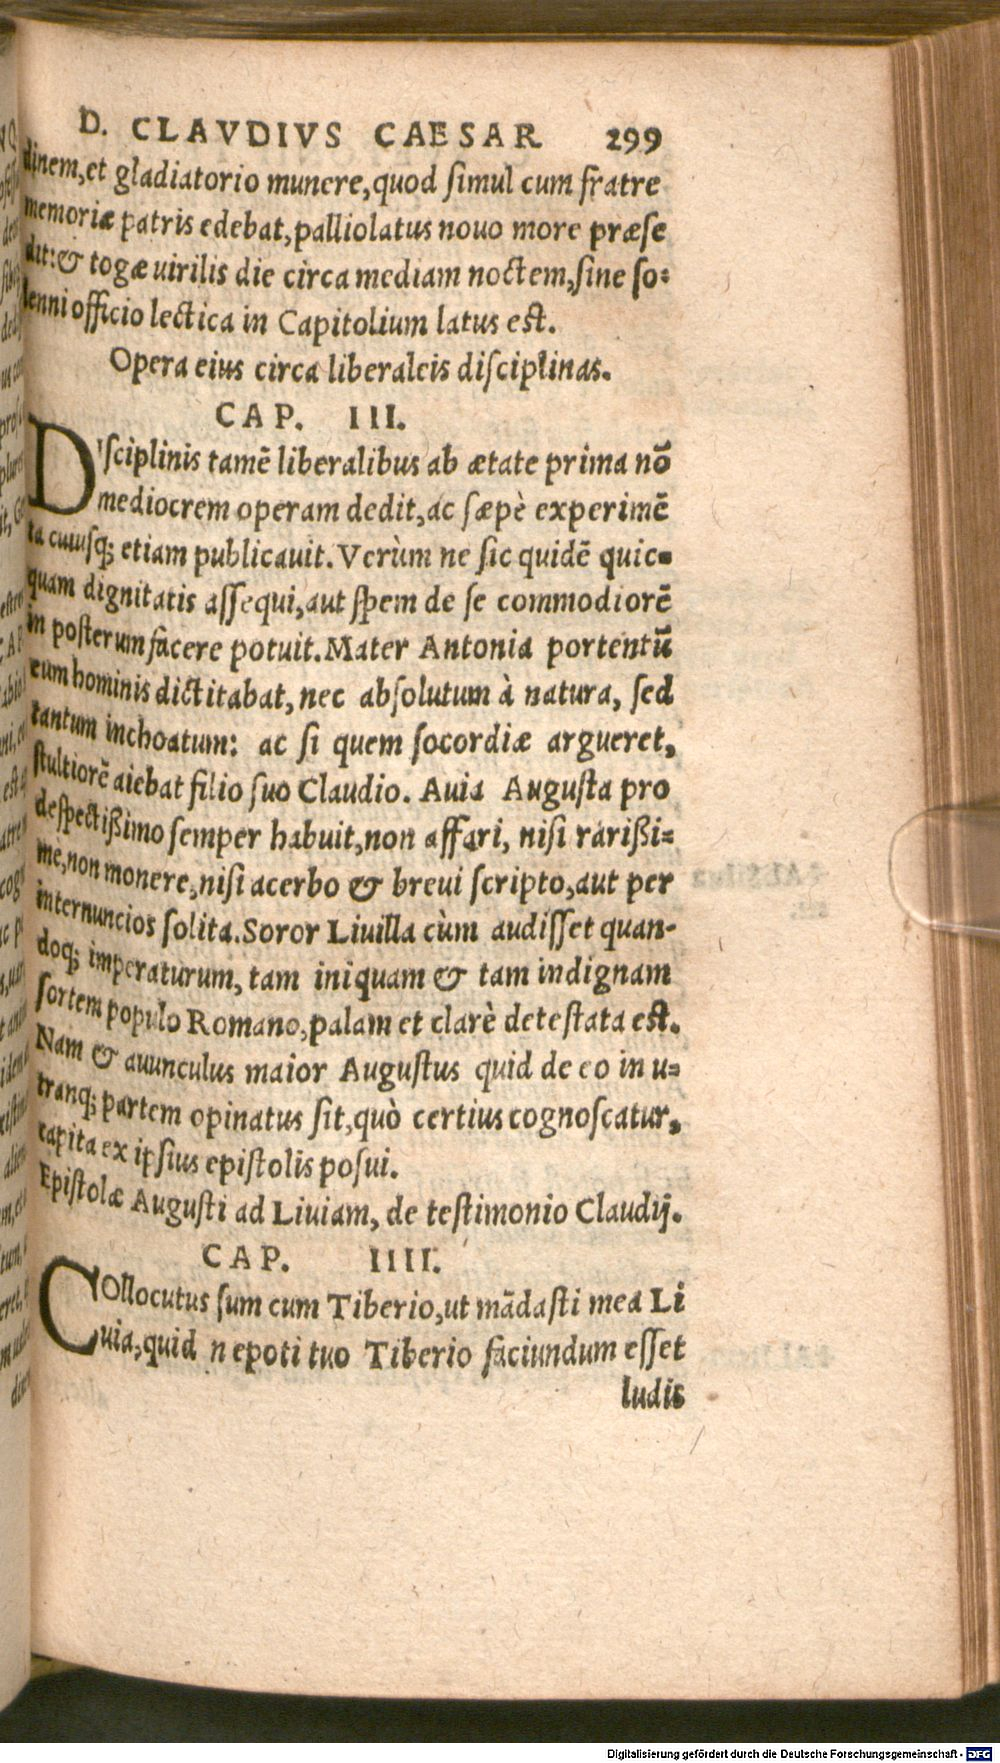 D. CLAVDIVS CAESAR 299
dinem, et gladiatorio munere, quod ſimul cum fratre
memoriæ patris edebat, palliolatus nouo more præſe
dit: & togæ uirilis die circa mediam noctem, ſine ſo-
lenni officio lectica in Capitolium latus eſt.
Opera eius circa liberaleis diſciplinas.
CAP. III.
Diſciplinis tamē liberalibus ab ætate prima nō
mediocrem operam dedit, ac ſæpè experimē
ta cuiuſq; etiam publicauit. Verùm ne ſic quidē quic-
quam dignitatis aſſequi, aut ſpem de ſe commodiorē
in poſterum facere potuit. Mater Antonia portentū
eum hominis dictitabat, nec abſolutum à natura, ſed
tantum inchoatum: ac ſi quem ſocordiæ argueret,
ſtultiorē aiebat filio ſuo Claudio. Auia Auguſta pro
deſpectißimo ſemper habuit, non affari, niſi rarißi-
me, non monere, niſi acerbo & breui ſcripto, aut per
internuncios ſolita. Soror Liuilla cùm audiſſet quan-
doq; imperaturum, tam iniquam & tam indignam
ſortem populo Romano, palam et clarè deteſtata eſt.
Nam & auunculus maior Auguſtus quid de eo in u-
tranq; partem opinatus ſit, quò certius cognoſcatur,
capita ex ipſius epiſtolis poſui.
Epiſtolæ Auguſti ad Liuiam, de teſtimonio Claudij.
CAP. IIII.
COllocutus ſum cum Tiberio, ut mādaſti mea Li
uia, quid nepoti tuo Tiberio faciundum eſſet
ludis
Digitalisierung gefördert durch die Deutsche Forschungsgemeinschaft - DFG